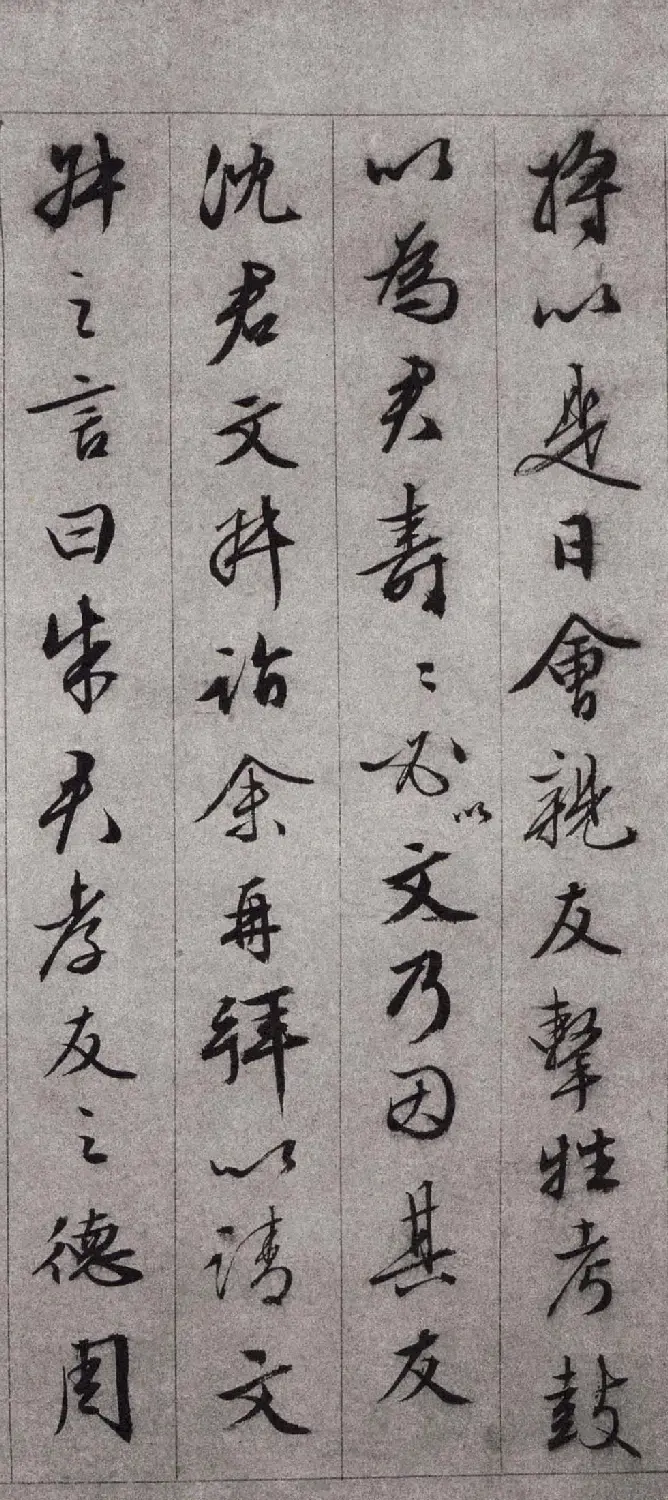 将以是日會親友擊牲考鼓
以為君壽〻必以文乃因其友
沈君文叔詣余再拜以請文
叔之言曰朱君孝友之德周